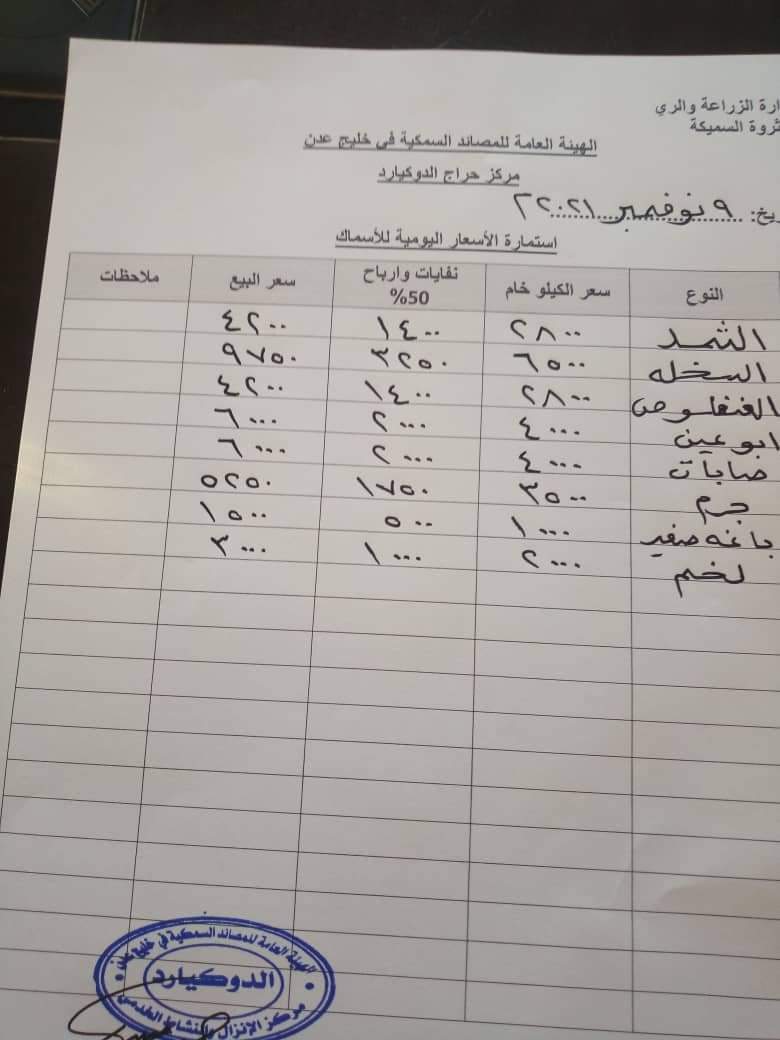 ارة الزراعة والري
ثروة السميكة
الهيئة العامة للمصائد السمكية في خليج عدن
مركز حراج الدوكيارد
ريخ: ٩ نوفمبر ٢٠٢١ ٢
استمارة الأسعار اليومية للأسماك
النوع سعر الكيلو خام نفايات وارباح 50% سعر البيع ملاحظات
الثمد ٢٨٠٠ ١٤٠٠ ٤٢٠٠
السخله ٦٥٠٠ ٣٢٥٠ ٩٧٥٠
العنفلوص ٢٨٠٠ ١٤٠٠ ٤٢٠٠
ابو عين ٤٠٠٠ ٢٠٠٠ ٦٠٠٠
صابات ٤٠٠٠ ٢٠٠٠ ٦٠٠٠
جرم ٣٥٠٠ ١٧٥٠ ٥٢٥٠
باغه صغير ١٠٠٠ ٥٠٠ ١٥٠٠
لخم ٢٠٠٠ ١٠٠٠ ٣٠٠٠
الهيئة العامة للمصائد السمكية في خليج عدن
الدوكيارد
مركز الإنزال والنشاط الخدمي